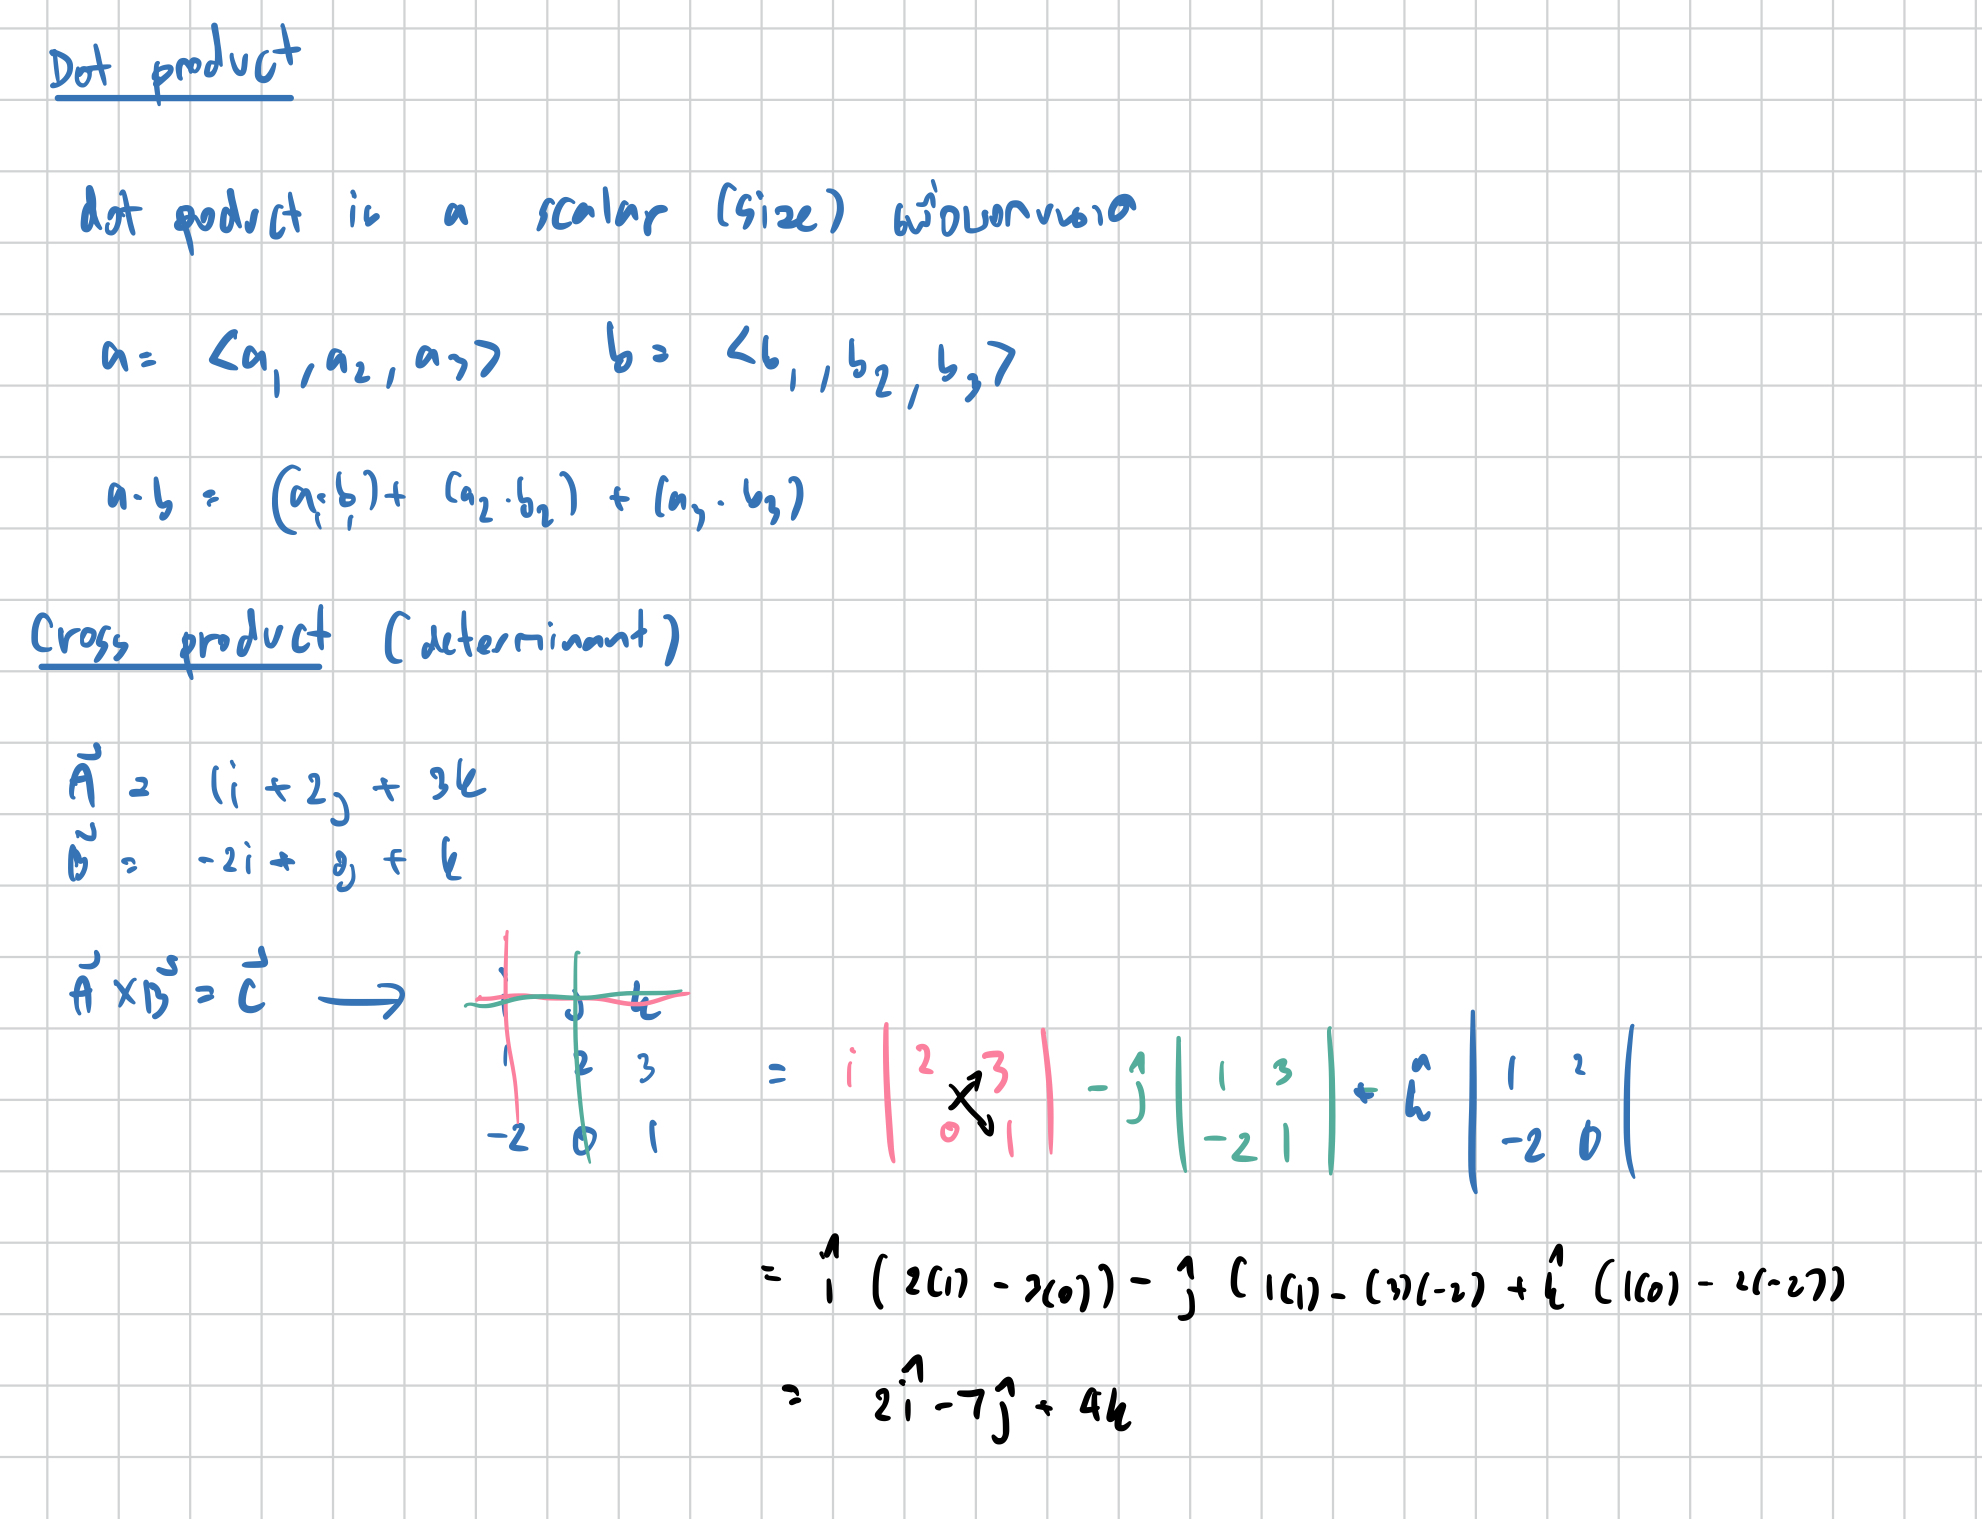 Dot product
dot product is a scalar (size) เพื่อบอกขนาด
a = <a₁, a₂, a₃> b = <b₁, b₂, b₃>
a·b = (a₁·b₁) + (a₂·b₂) + (a₃·b₃)
Cross product (determinant)
A⃗ = 1i + 2j + 3k
B⃗ = -2i + 0j + k
A⃗ × B⃗ = C⃗ ⟶ i j k
1 2 3
-2 0 1
= i |2 3; 0 1| - ĵ |1 3; -2 1| + k̂ |1 2; -2 0|
= î (2(1) - 3(0)) - ĵ (1(1) - (3)(-2) + k̂ (1(0) - 2(-2))
= 2î - 7ĵ + 4k